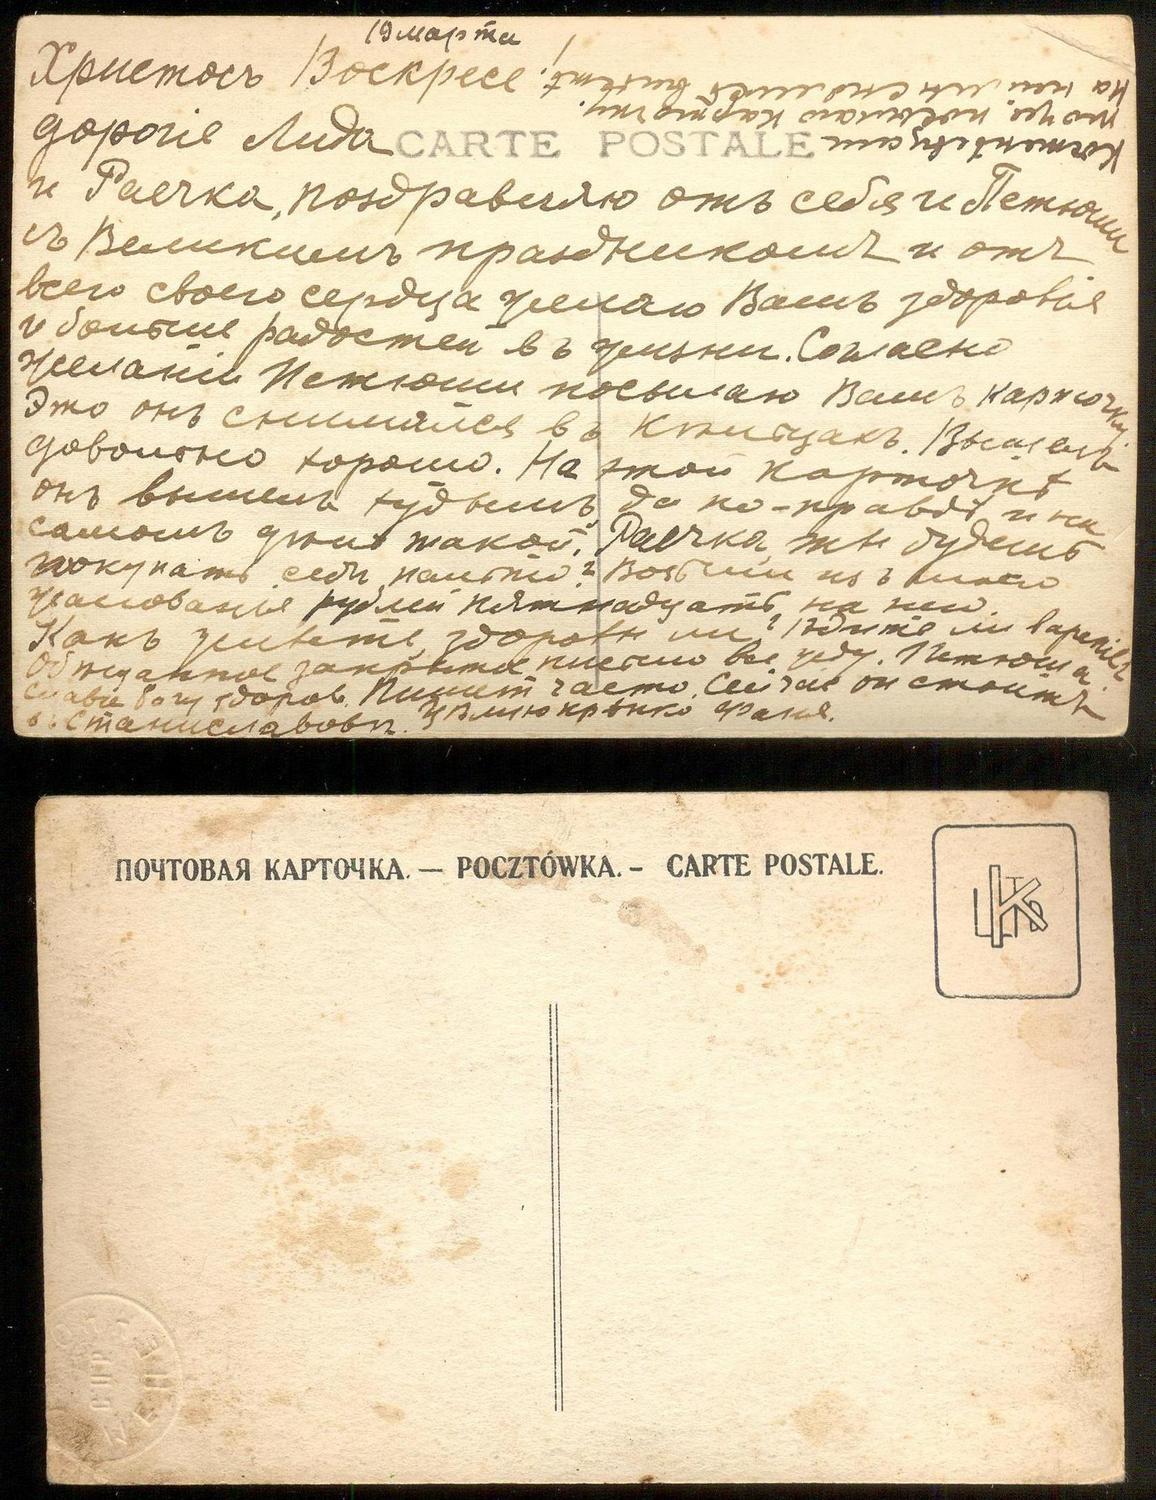 19 марта
Христосъ Воскресе!
дорогiе Лида
CARTE POSTALE
и Раечка, поздравляю отъ себя и Петюши
съ Великимъ праздникомъ и отъ
всего своего сердца желаю Вамъ здоровiя
и больше радостей въ жизни. Согласно
желанiй Петюши посылаю Вамъ карточку.
Это онъ снимался въ
довольно хорошо. На этой карточкѣ
онъ вышелъ худымъ, да по-правдѣ и на
самомъ дѣлѣ такой. Раечка, ты будешь
покупать себѣ пальто? Возьми изъ
жалованiя рублей пятнадцать на него.
Какъ живете, здоровы ли? Ѣдите ли
Обѣщанное закрытое письмо все жду. Петюша
слава Богу здоровъ. Пишетъ часто. Сейчас он стоитъ
въ Станиславовѣ. Цѣлую крѣпко Фаня.
посылаю карточку.
На ней
ПОЧТОВАЯ КАРТОЧКА. — POCZTÓWKA. - CARTE POSTALE.